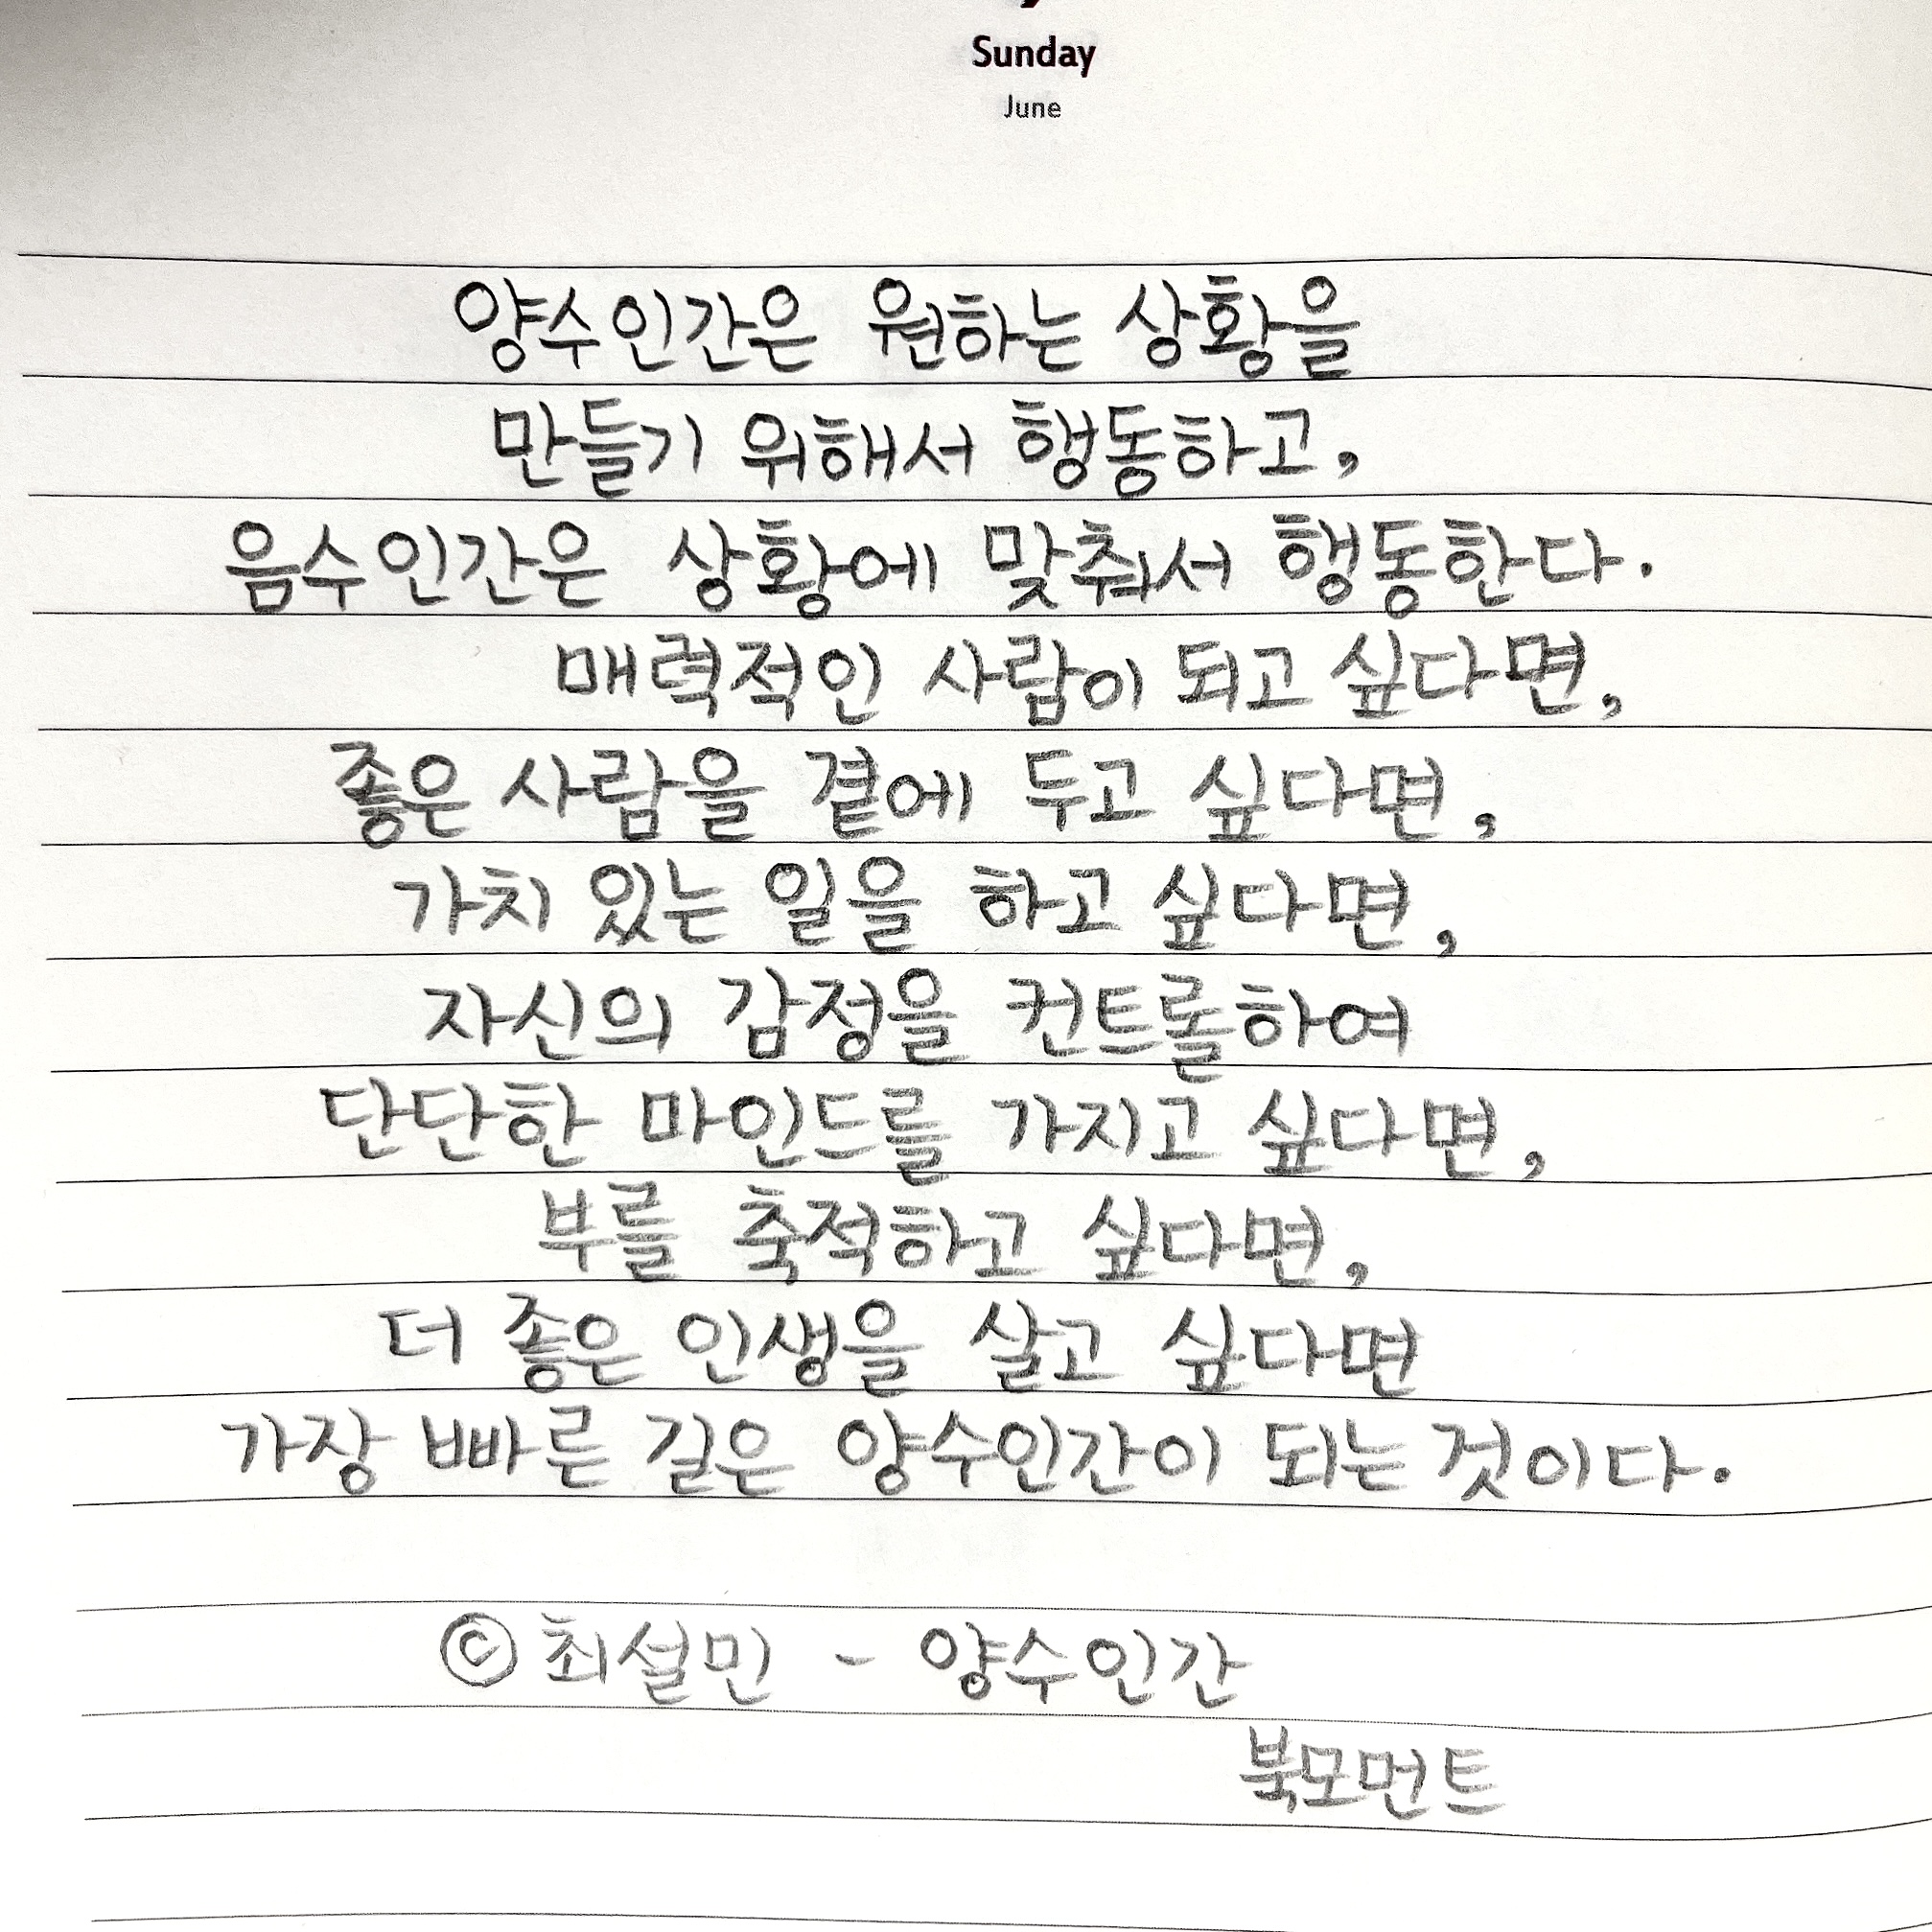 Sunday
June
양수인간은 원하는 상황을
만들기 위해서 행동하고,
음수인간은 상황에 맞춰서 행동한다.
매력적인 사람이 되고 싶다면,
좋은 사람을 곁에 두고 싶다면,
가치 있는 일을 하고 싶다면,
자신의 감정을 컨트롤하여
단단한 마인드를 가지고 싶다면,
부를 축적하고 싶다면,
더 좋은 인생을 살고 싶다면
가장 빠른 길은 양수인간이 되는 것이다.
ⓒ 최설민 - 양수인간
북모먼트